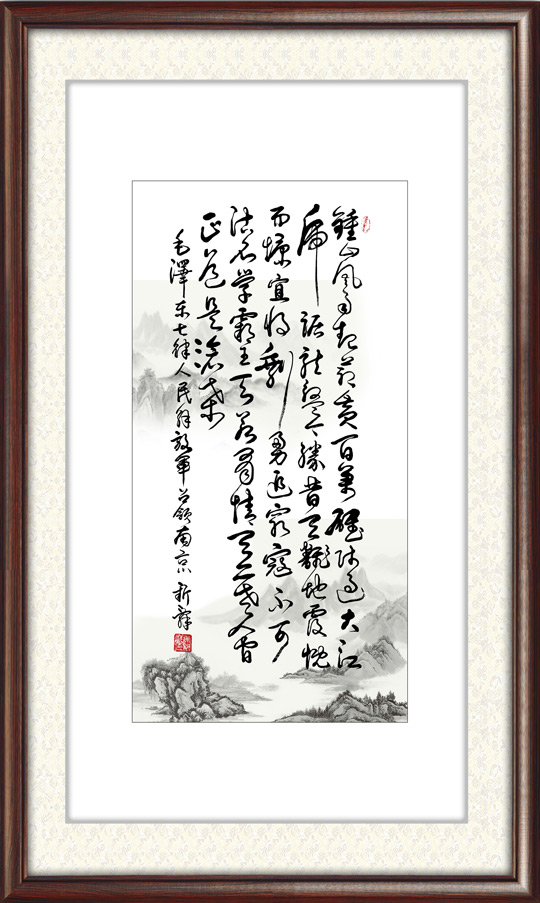 鍾山風雨起蒼黄百萬雄师過大江
虎踞龍盤今勝昔天翻地覆慨
而慷宜将剩勇追窮寇不可
沽名学霸王天若有情天亦老人间
正道是滄桑
毛澤东七律人民解放軍占领南京